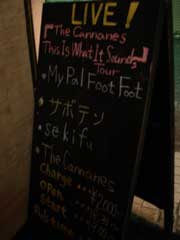 LIVE!
The Cannanes
This Is What It Sounds
Tour
・My Pal Foot Foot
・サボテン
・sekifu
・The Cannanes
Charge
OPEN
Start